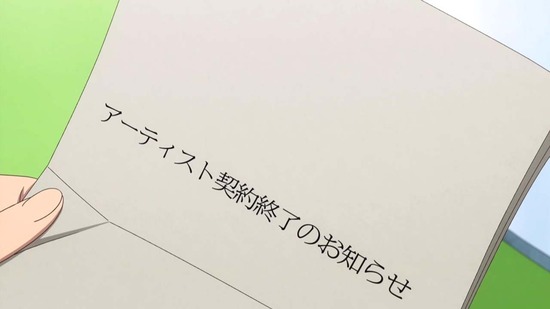 アーティスト契約終了のお知らせ